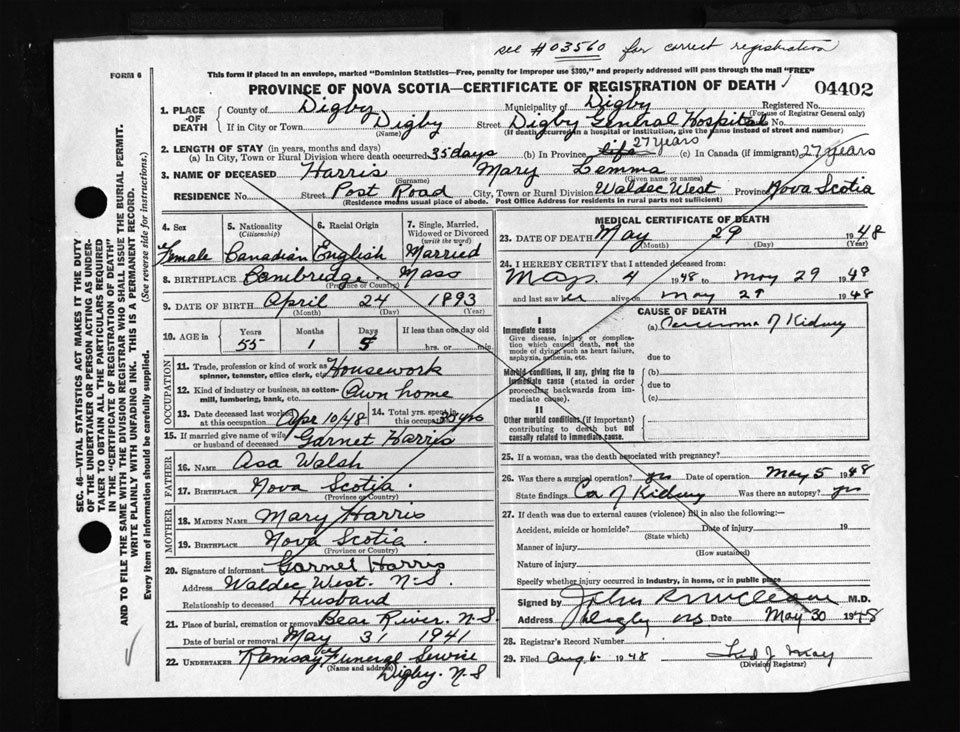 see #03560 for correct registration
FORM 6
This form if placed in an envelope, marked "Dominion Statistics—Free, penalty for improper use $300," and properly addressed will pass through the mail "FREE"
PROVINCE OF NOVA SCOTIA—CERTIFICATE OF REGISTRATION OF DEATH 04402
1. PLACE -OF DEATH County of Digby Municipality of Digby Registered No.
(For use of Registrar General only)
If in City or Town Digby Street Digby General Hospital No.
(Name) (If death occurred in a hospital or institution, give the name instead of street and number)
2. LENGTH OF STAY (in years, months and days) 27 years
(a) In City, Town or Rural Division where death occurred 35 days (b) In Province life (c) In Canada (if immigrant) 27 years
3. NAME OF DECEASED Harris Mary Lemma
(Surname) (Given name or names)
RESIDENCE No. Street Post Road City, Town or Rural Division Waldec West Province Nova Scotia
(Residence means usual place of abode. Post Office Address for residents in rural parts not sufficient)
4. Sex 5. Nationality (Citizenship) 6. Racial Origin 7. Single, Married, Widowed or Divorced (write the word)
Female Canadian English Married
8. BIRTHPLACE Cambridge. Mass
(Province or Country)
9. DATE OF BIRTH April 24 1893
(Month) (Day) (Year)
10. AGE in Years Months Days If less than one day old
55 1 5 hrs. or min.
OCCUPATION
11. Trade, profession or kind of work as spinner, teamster, office clerk, etc. Housework
12. Kind of industry or business, as cotton-mill, lumbering, bank, etc. Own home
13. Date deceased last worked at this occupation Apr 10/48 14. Total yrs. spent in this occupation 30 yrs
15. If married give name of wife or husband of deceased Garnet Harris
FATHER
16. NAME Asa Walsh
17. BIRTHPLACE Nova Scotia.
(Province or Country)
MOTHER
18. MAIDEN NAME Mary Harris
19. BIRTHPLACE Nova Scotia.
(Province or Country)
20. Signature of informant Garnet Harris
Address Waldec West. N-S.
Relationship to deceased Husband
21. Place of burial, cremation or removal Bear River. N.S
Date of burial or removal May 31 1941
22. UNDERTAKER Ramsay Funeral Service
(Name and address) Digby. N.S
MEDICAL CERTIFICATE OF DEATH
23. DATE OF DEATH May 29 1948
(Month) (Day) (Year)
24. I HEREBY CERTIFY that I attended deceased from:
May. 4 1948 to May 29 1948
and last saw her alive on May 29 1948
CAUSE OF DEATH
I
Immediate cause (a) Carcinoma of Kidney
Give disease, injury or complication which caused death, not the mode of dying, such as heart failure, asphyxia, asthenia, etc.
due to
Morbid conditions, if any, giving rise to immediate cause (stated in order proceeding backwards from immediate cause). (b)
due to
(c)
II
Other morbid conditions (if important) contributing to death but not causally related to immediate cause.
25. If a woman, was the death associated with pregnancy?
26. Was there a surgical operation? yes Date of operation May 5 1948
State findings Ca of Kidney Was there an autopsy? yes
27. If death was due to external causes (violence) fill in also the following:—
Accident, suicide or homicide? Date of injury 19
(State which)
Manner of injury
(How sustained)
Nature of injury
Specify whether injury occurred in industry, in home, or in public place
Signed by John R McCleave M.D.
Address Digby NS Date May 30 1948
28. Registrar's Record Number
29. Filed Aug 6 1948 Fred J. May
(Division Registrar)
SEC. 46—VITAL STATISTICS ACT MAKES IT THE DUTY
OF THE UNDERTAKER OR PERSON ACTING AS UNDER-
TAKER TO OBTAIN ALL THE PARTICULARS REQUIRED
IN THE "CERTIFICATE OF REGISTRATION OF DEATH"
AND TO FILE THE SAME WITH THE DIVISION REGISTRAR WHO SHALL ISSUE THE BURIAL PERMIT.
WRITE PLAINLY WITH UNFADING INK. THIS IS A PERMANENT RECORD.
Every item of information should be carefully supplied. (See reverse side for instructions.)